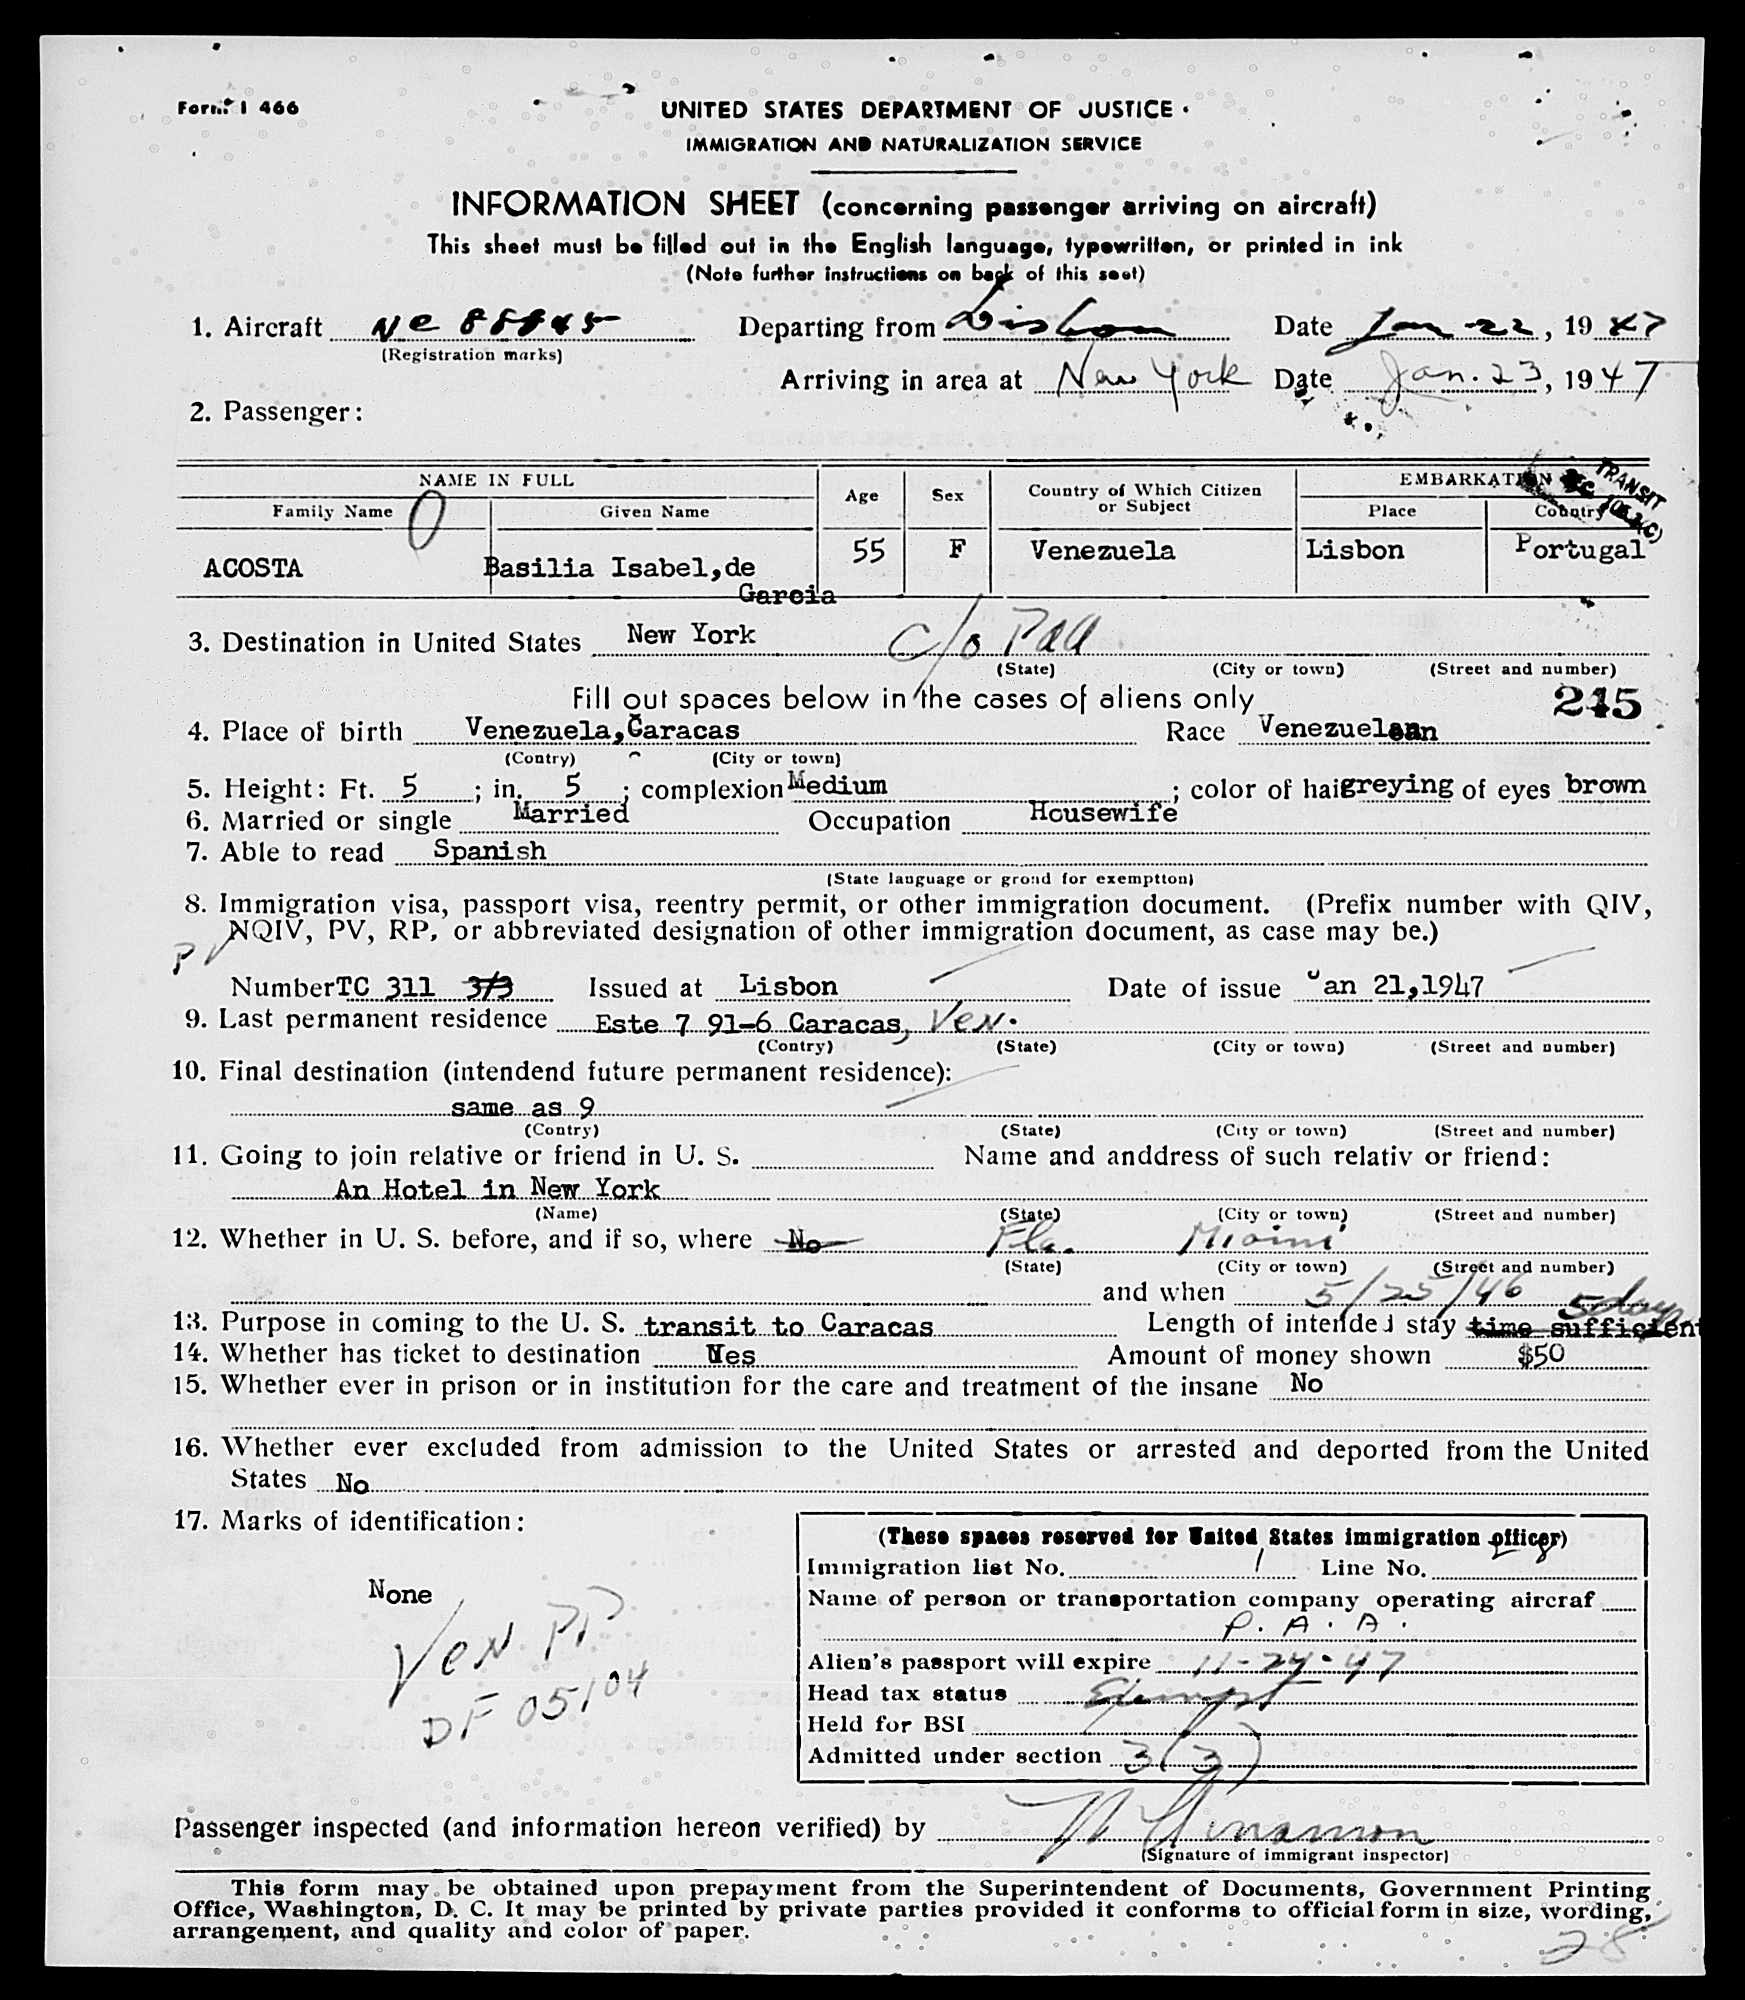 Form I 466
UNITED STATES DEPARTMENT OF JUSTICE
IMMIGRATION AND NATURALIZATION SERVICE
INFORMATION SHEET (concerning passenger arriving on aircraft)
This sheet must be filled out in the English language, typewritten, or printed in ink
(Note further instructions on back of this seet)
1. Aircraft NC 88845 Departing from Lisbon Date Jan 22, 1947
(Registration marks)
Arriving in area at New York Date Jan. 23, 1947
2. Passenger:
NAME IN FULL Age Sex Country of Which Citizen or Subject EMBARKATION
TRANSIT
Family Name Given Name Place Country
ACOSTA Basilia Isabel,de Garcia 55 F Venezuela Lisbon Portugal
3. Destination in United States New York c/o PAA
(State) (City or town) (Street and number)
Fill out spaces below in the cases of aliens only
245
4. Place of birth Venezuela,Caracas Race Venezuelean
(Contry) (City or town)
5. Height: Ft. 5 ; in. 5 ; complexion Medium ; color of hai greying of eyes brown
6. Married or single Married Occupation Housewife
7. Able to read Spanish
(State language or grond for exemptton)
8. Immigration visa, passport visa, reentry permit, or other immigration document. (Prefix number with QIV,
NQIV, PV, RP, or abbreviated designation of other immigration document, as case may be.)
PV
Number TC 311 3/3 Issued at Lisbon Date of issue Jan 21,1947
9. Last permanent residence Este 7 91-6 Caracas, Ven.
(Contry) (State) (City or town) (Street and number)
10. Final destination (intendend future permanent residence):
same as 9
(Contry) (State) (City or town) (Street and number)
11. Going to join relative or friend in U. S. Name and anddress of such relativ or friend:
An Hotel in New York
(Name) (State) (City or town) (Street and number)
12. Whether in U. S. before, and if so, where No Fla. Miami
(State) (City or town) (Street and number)
and when 5/25/46
5 days
13. Purpose in coming to the U. S. transit to Caracas Length of intended stay time sufficient
14. Whether has ticket to destination Yes Amount of money shown $50
15. Whether ever in prison or in institution for the care and treatment of the insane No
16. Whether ever excluded from admission to the United States or arrested and deported from the United
States No
17. Marks of identification:
None
Ven PP
DF 05104
(These spaces reserved for United States immigration officer)
Immigration list No. 1 Line No. 8
Name of person or transportation company operating aircraf
P. A. A.
Alien's passport will expire 11-24-47
Head tax status Exempt
Held for BSI
Admitted under section 3(3)
Passenger inspected (and information hereon verified) by
(Signature of immigrant inspector)
This form may be obtained upon prepayment from the Superintendent of Documents, Government Printing
Office, Washington, D. C. It may be printed by private parties provided it conforms to official form in size, wording,
arrangement, and quality and color of paper.
28